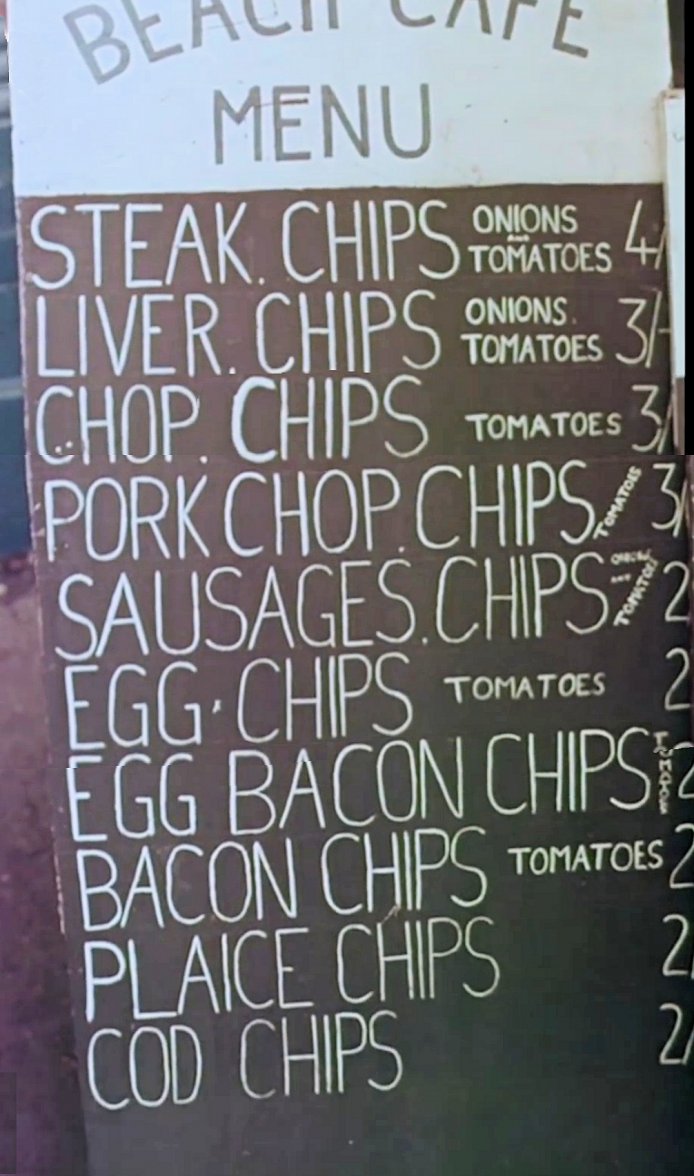 BEACH CAFE
MENU
STEAK. CHIPS ONIONS AND TOMATOES 4/
LIVER. CHIPS ONIONS. TOMATOES 3/-
CHOP. CHIPS TOMATOES 3/
PORK CHOP. CHIPS. TOMATOES 3/
SAUSAGES. CHIPS TOMATOES 2
EGG. CHIPS TOMATOES 2
EGG BACON CHIPS TOMATOES 2
BACON CHIPS TOMATOES 2
PLAICE CHIPS 2/
COD CHIPS 2/